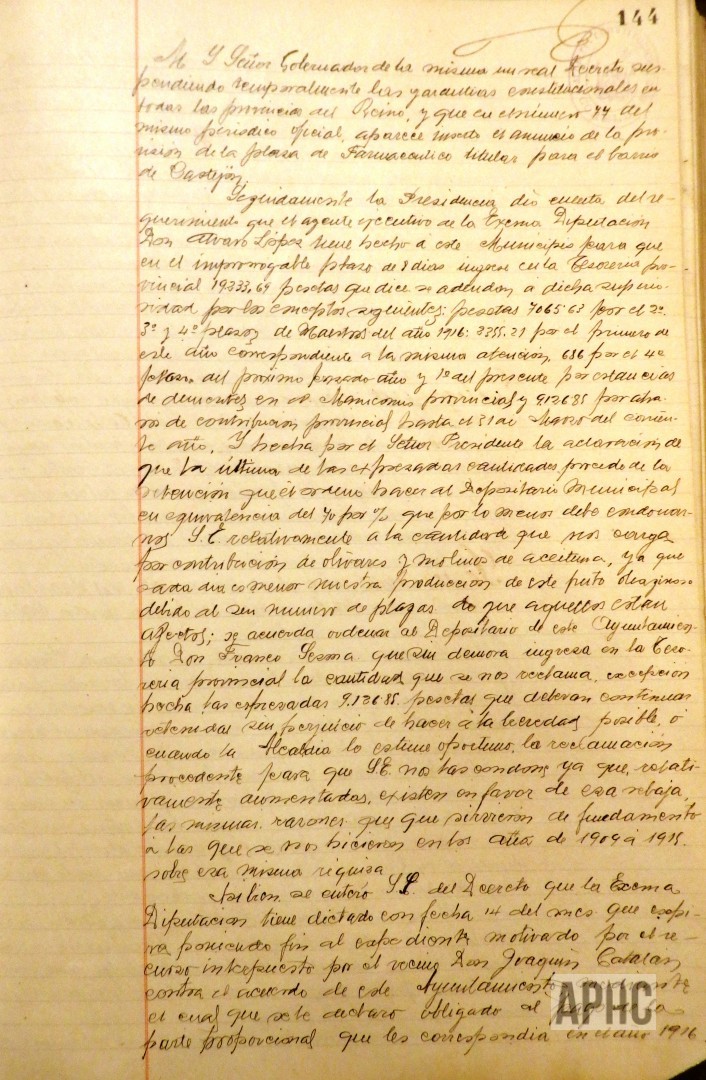 144
M. I Señor Gobernador de la misma un real Decreto sus-
pendiendo temporalmente las garantias constitucionales en
todas las provincias del Reino, y que en el número 77 del
mismo periodico oficial, aparece inserto el anuncio de la pro-
visión de la plaza de Farmaceutico titular para el barrio
de Castejón.
Seguidamente la Presidencia dio cuenta del re-
querimiento que el agente ejecutivo de la Excma Diputación
Don Alvaro López tiene hecho a este Municipio para que
en el improrrogable plazo de 8 dias ingrese en la Tesoreria pro-
vincial 19.333,69 pesetas que dice se adeudan a dicha superio-
ridad por los conceptos siguientes: pesetas 7065.63 por el 2º
3º y 4º plazos de Maestros del año 1916: 2355.21 por el primero de
este año correspondiente a la misma atención, 686 por el 4º
plazo del próximo pasado año y 1º del presente por estancias
de dementes en el Manicomio provincial y 9126.85 por atra-
sos de contribución provincial hasta el 31 de Marzo del corrien-
te año. Y hecha por el Señor Presidente la aclaración de
que la última de las expresadas cantidades, procede de la
retención que el ordenó hacer al Depositario Municipal
en equivalencia del 70 por % que por lo menos debe condonar-
nos S.E. relativamente a la cantidad que nos carga
por contribución de olivares y molinos de aceituna, ya que
cada dia es menor nuestra producción de este fruto oleaginoso
debido al sin número de plagas de que aquellos estan
afectos; se acuerda ordenar al Depositario de este Ayuntamien-
to Don Franco Sesma que sin demora ingrese en la Teso-
reria provincial la cantidad que se nos reclama, excepción
hecha las expresadas 9.126.85 pesetas que deberan continuar
retenidas sin perjuicio de hacer a la brevedad posible, o
cuando la Alcaldia lo estime oportuno, la reclamación
procedente para que S.E. nos las condone ya que, relati-
vamente aumentadas, existen en favor de esa rebaja,
las mismas razones que sirvieron de fundamento
a las que se nos hicieron en los años de 1909 á 1915.
sobre esa misma riqueza
Asi bien se enteró S.S. del Decreto que la Excma
Diputación tiene dictado con fecha 14 del mes que expi-
ra poniendo fin al expediente motivado por el re-
curso interpuesto por el vecino Don Joaquin Catalan
contra el acuerdo de este Ayuntamiento
el cual que se le declaro obligado al
parte proporcional que les correspondia en el año 1916
APHC